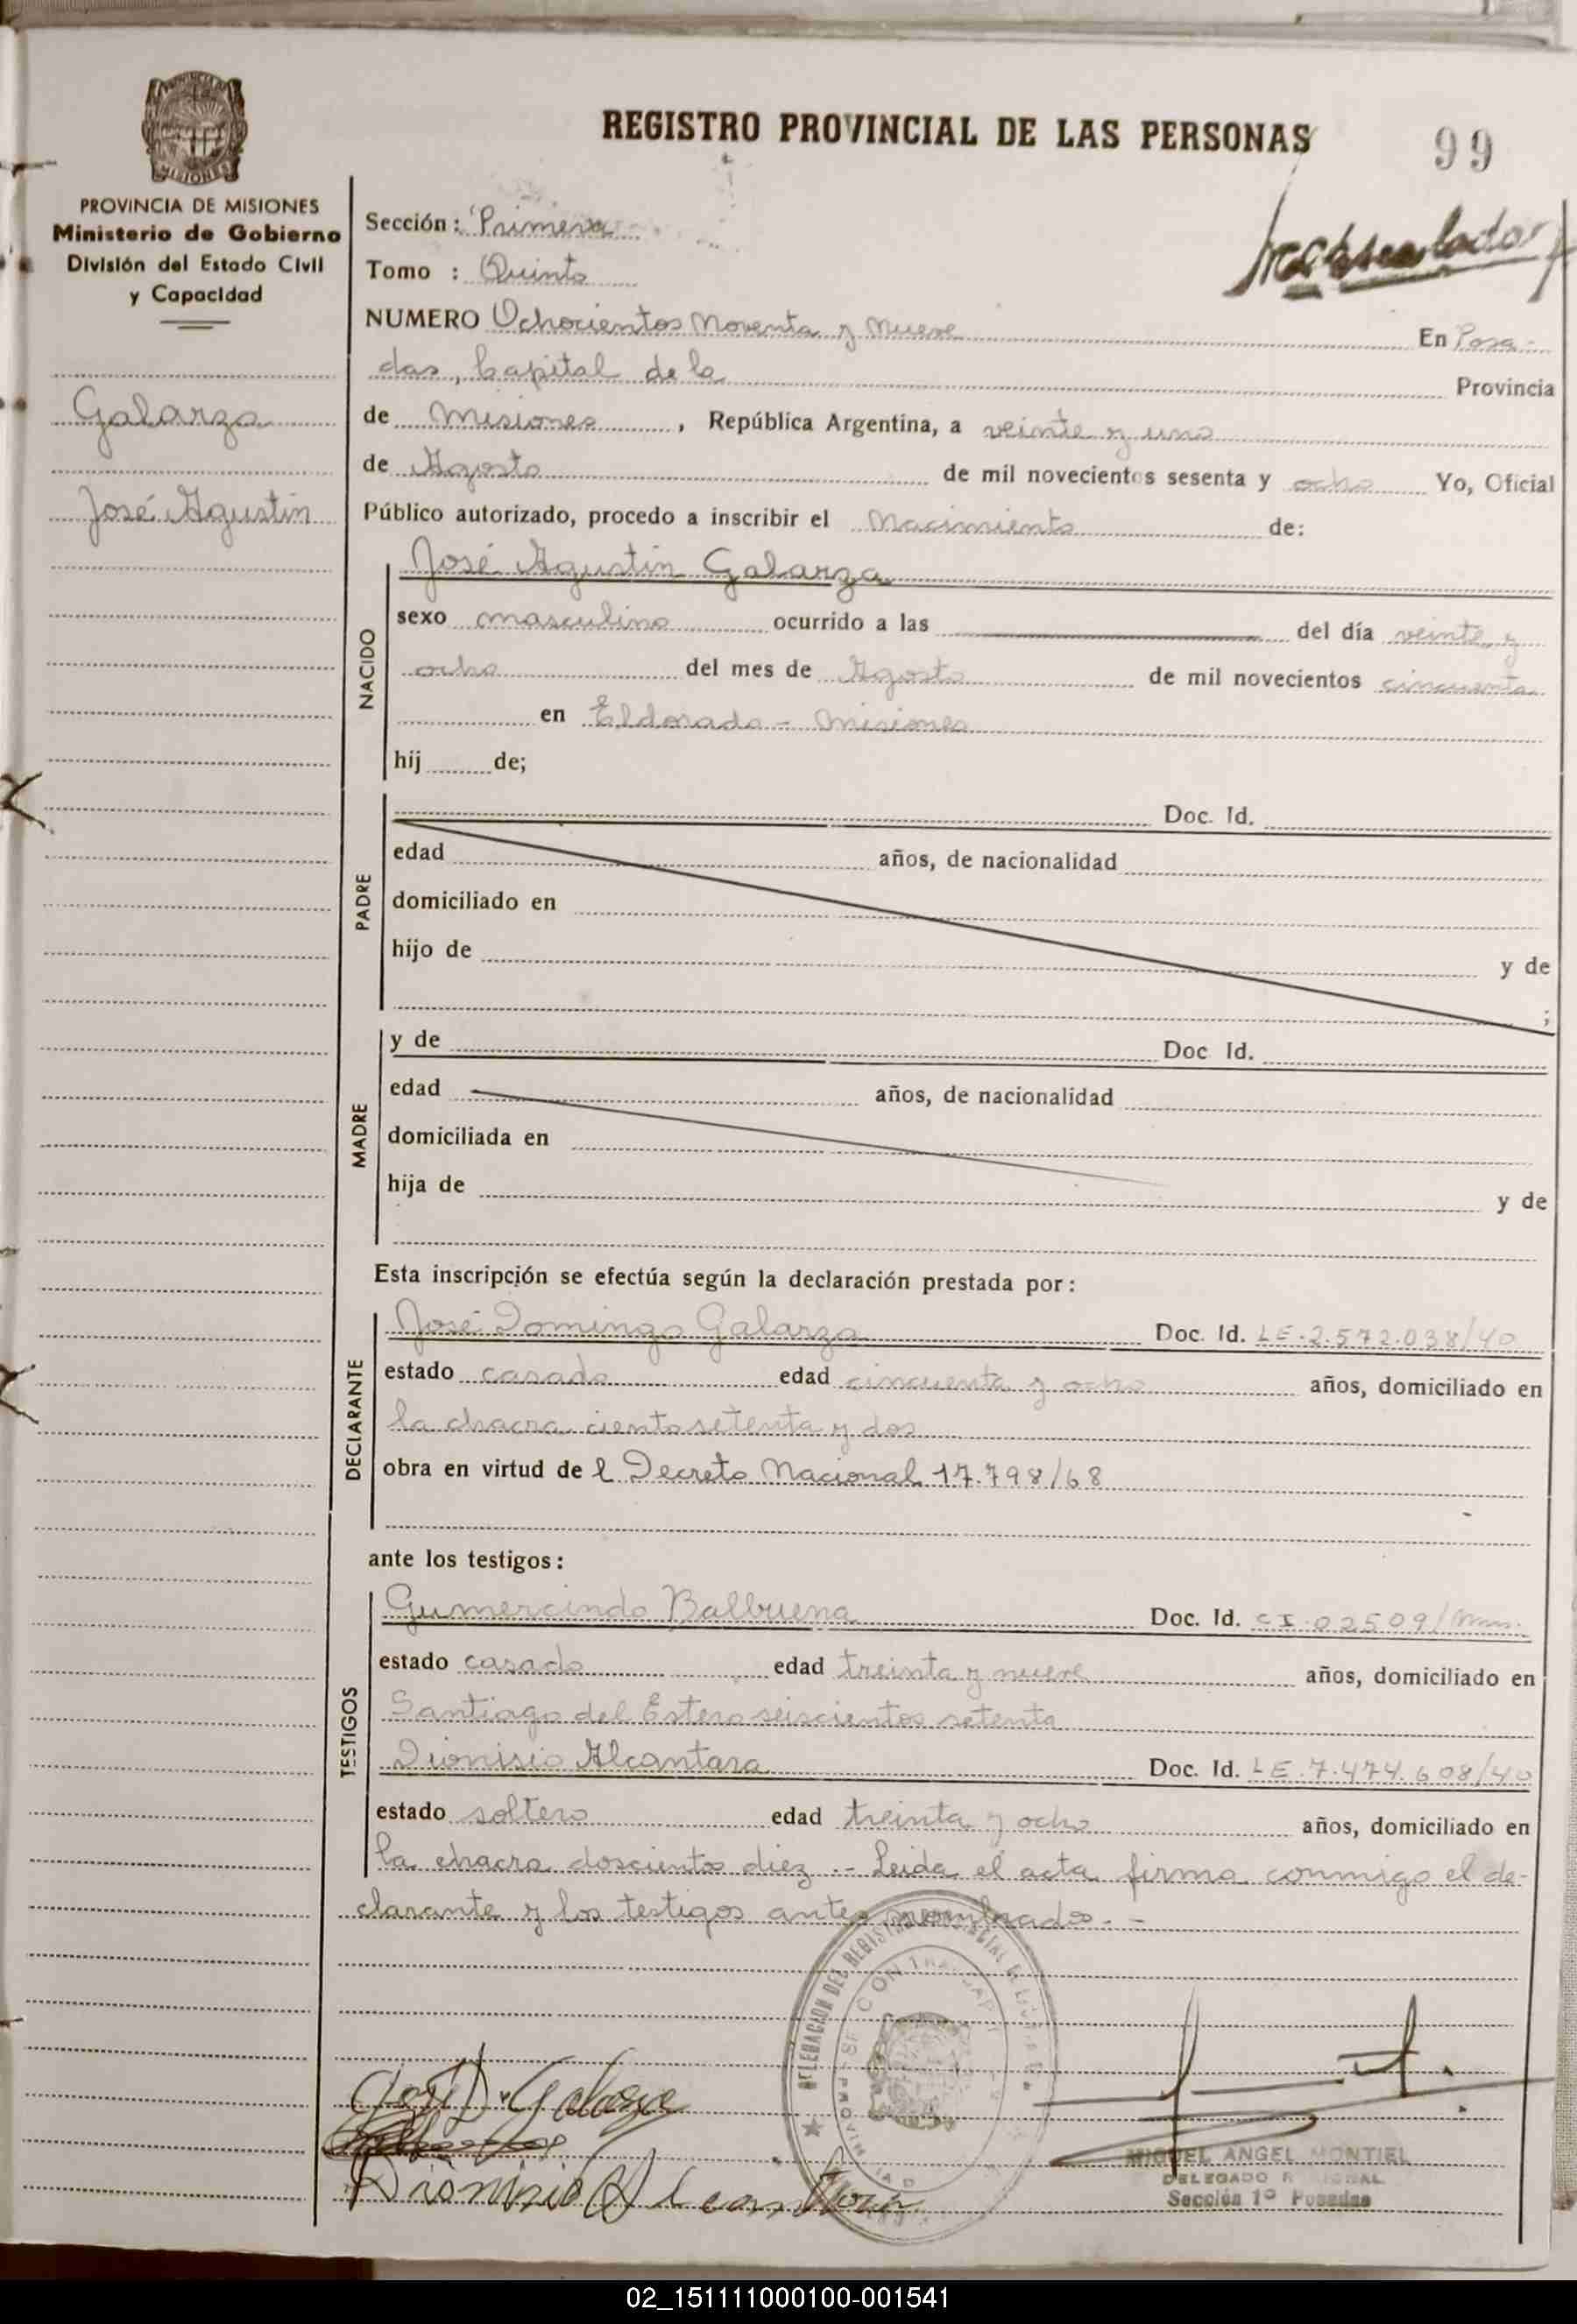 REGISTRO PROVINCIAL DE LAS PERSONAS
99
PROVINCIA DE MISIONES
MISIONES
Ministerio de Gobierno
División del Estado Civil
y Capacidad
Galarza
José Agustin
Sección: Primera
Tomo : Quinto
NUMERO Ochocientos Noventa y Nueve En Posa-
das, Capital de la Provincia
de Misiones, República Argentina, a veinte y uno
de Agosto de mil novecientos sesenta y ocho Yo, Oficial
Público autorizado, procedo a inscribir el Nacimiento de:
NACIDO
José Agustin Galarza
sexo masculino ocurrido a las del día veinte y
ocho del mes de Agosto de mil novecientos cincuenta
en Eldorado - Misiones
hij de;
PADRE
Doc. Id.
edad años, de nacionalidad
domiciliado en
hijo de y de
;
MADRE
y de Doc Id.
edad años, de nacionalidad
domiciliada en
hija de y de
Esta inscripción se efectúa según la declaración prestada por:
DECLARANTE
José Domingo Galarza Doc. Id. LE.2.572.038/40
estado casado edad cincuenta y ocho años, domiciliado en
la chacra ciento setenta y dos
obra en virtud de l Decreto Nacional 17.798/68
ante los testigos:
TESTIGOS
Gumercindo Balbuena Doc. Id. CI.02509/Mnes.
estado casado edad treinta y nueve años, domiciliado en
Santiago del Estero seiscientos setenta
Dionisio Alcantara Doc. Id. LE.7.474.608/40
estado soltero edad treinta y ocho años, domiciliado en
la chacra doscientos diez.- Leida el acta firma conmigo el de-
clarante y los testigos antes nombrados.-
DELEGACION DEL REGISTRO PROVINCIAL
José D. Galarza
Dionisio Alcantara
MIGUEL ANGEL MONTIEL
DELEGADO
Sección 1º Posadas
02_151111000100-001541